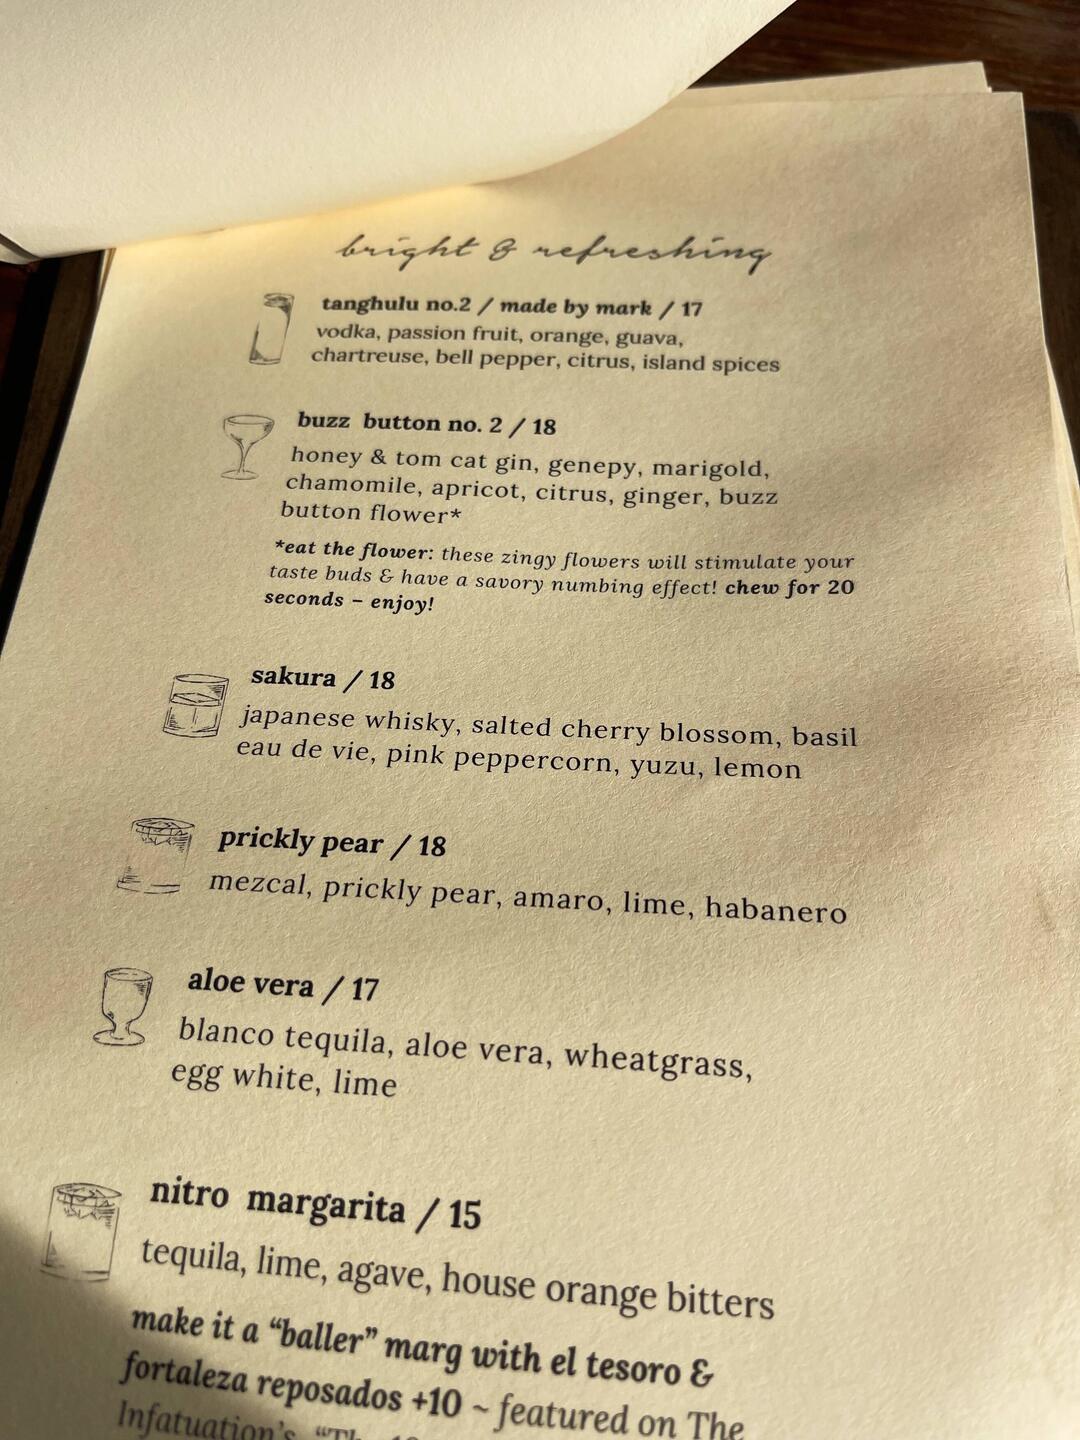 bright & refreshing
tanghulu no.2 / made by mark / 17
vodka, passion fruit, orange, guava,
chartreuse, bell pepper, citrus, island spices
buzz button no. 2 / 18
honey & tom cat gin, genepy, marigold,
chamomile, apricot, citrus, ginger, buzz
button flower*
*eat the flower: these zingy flowers will stimulate your
taste buds & have a savory numbing effect! chew for 20
seconds – enjoy!
sakura / 18
japanese whisky, salted cherry blossom, basil
eau de vie, pink peppercorn, yuzu, lemon
prickly pear / 18
mezcal, prickly pear, amaro, lime, habanero
aloe vera / 17
blanco tequila, aloe vera, wheatgrass,
egg white, lime
nitro margarita / 15
tequila, lime, agave, house orange bitters
make it a “baller” marg with el tesoro &
fortaleza reposados +10 ~ featured on The
Infatuation’s “The